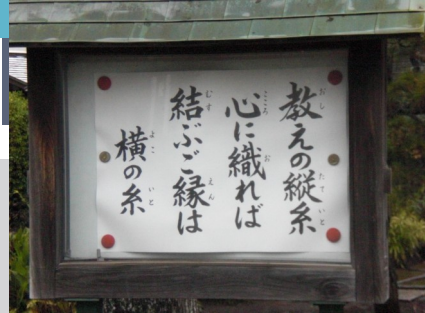 教えの縦糸
心に織れば
結ぶご縁は
横の糸